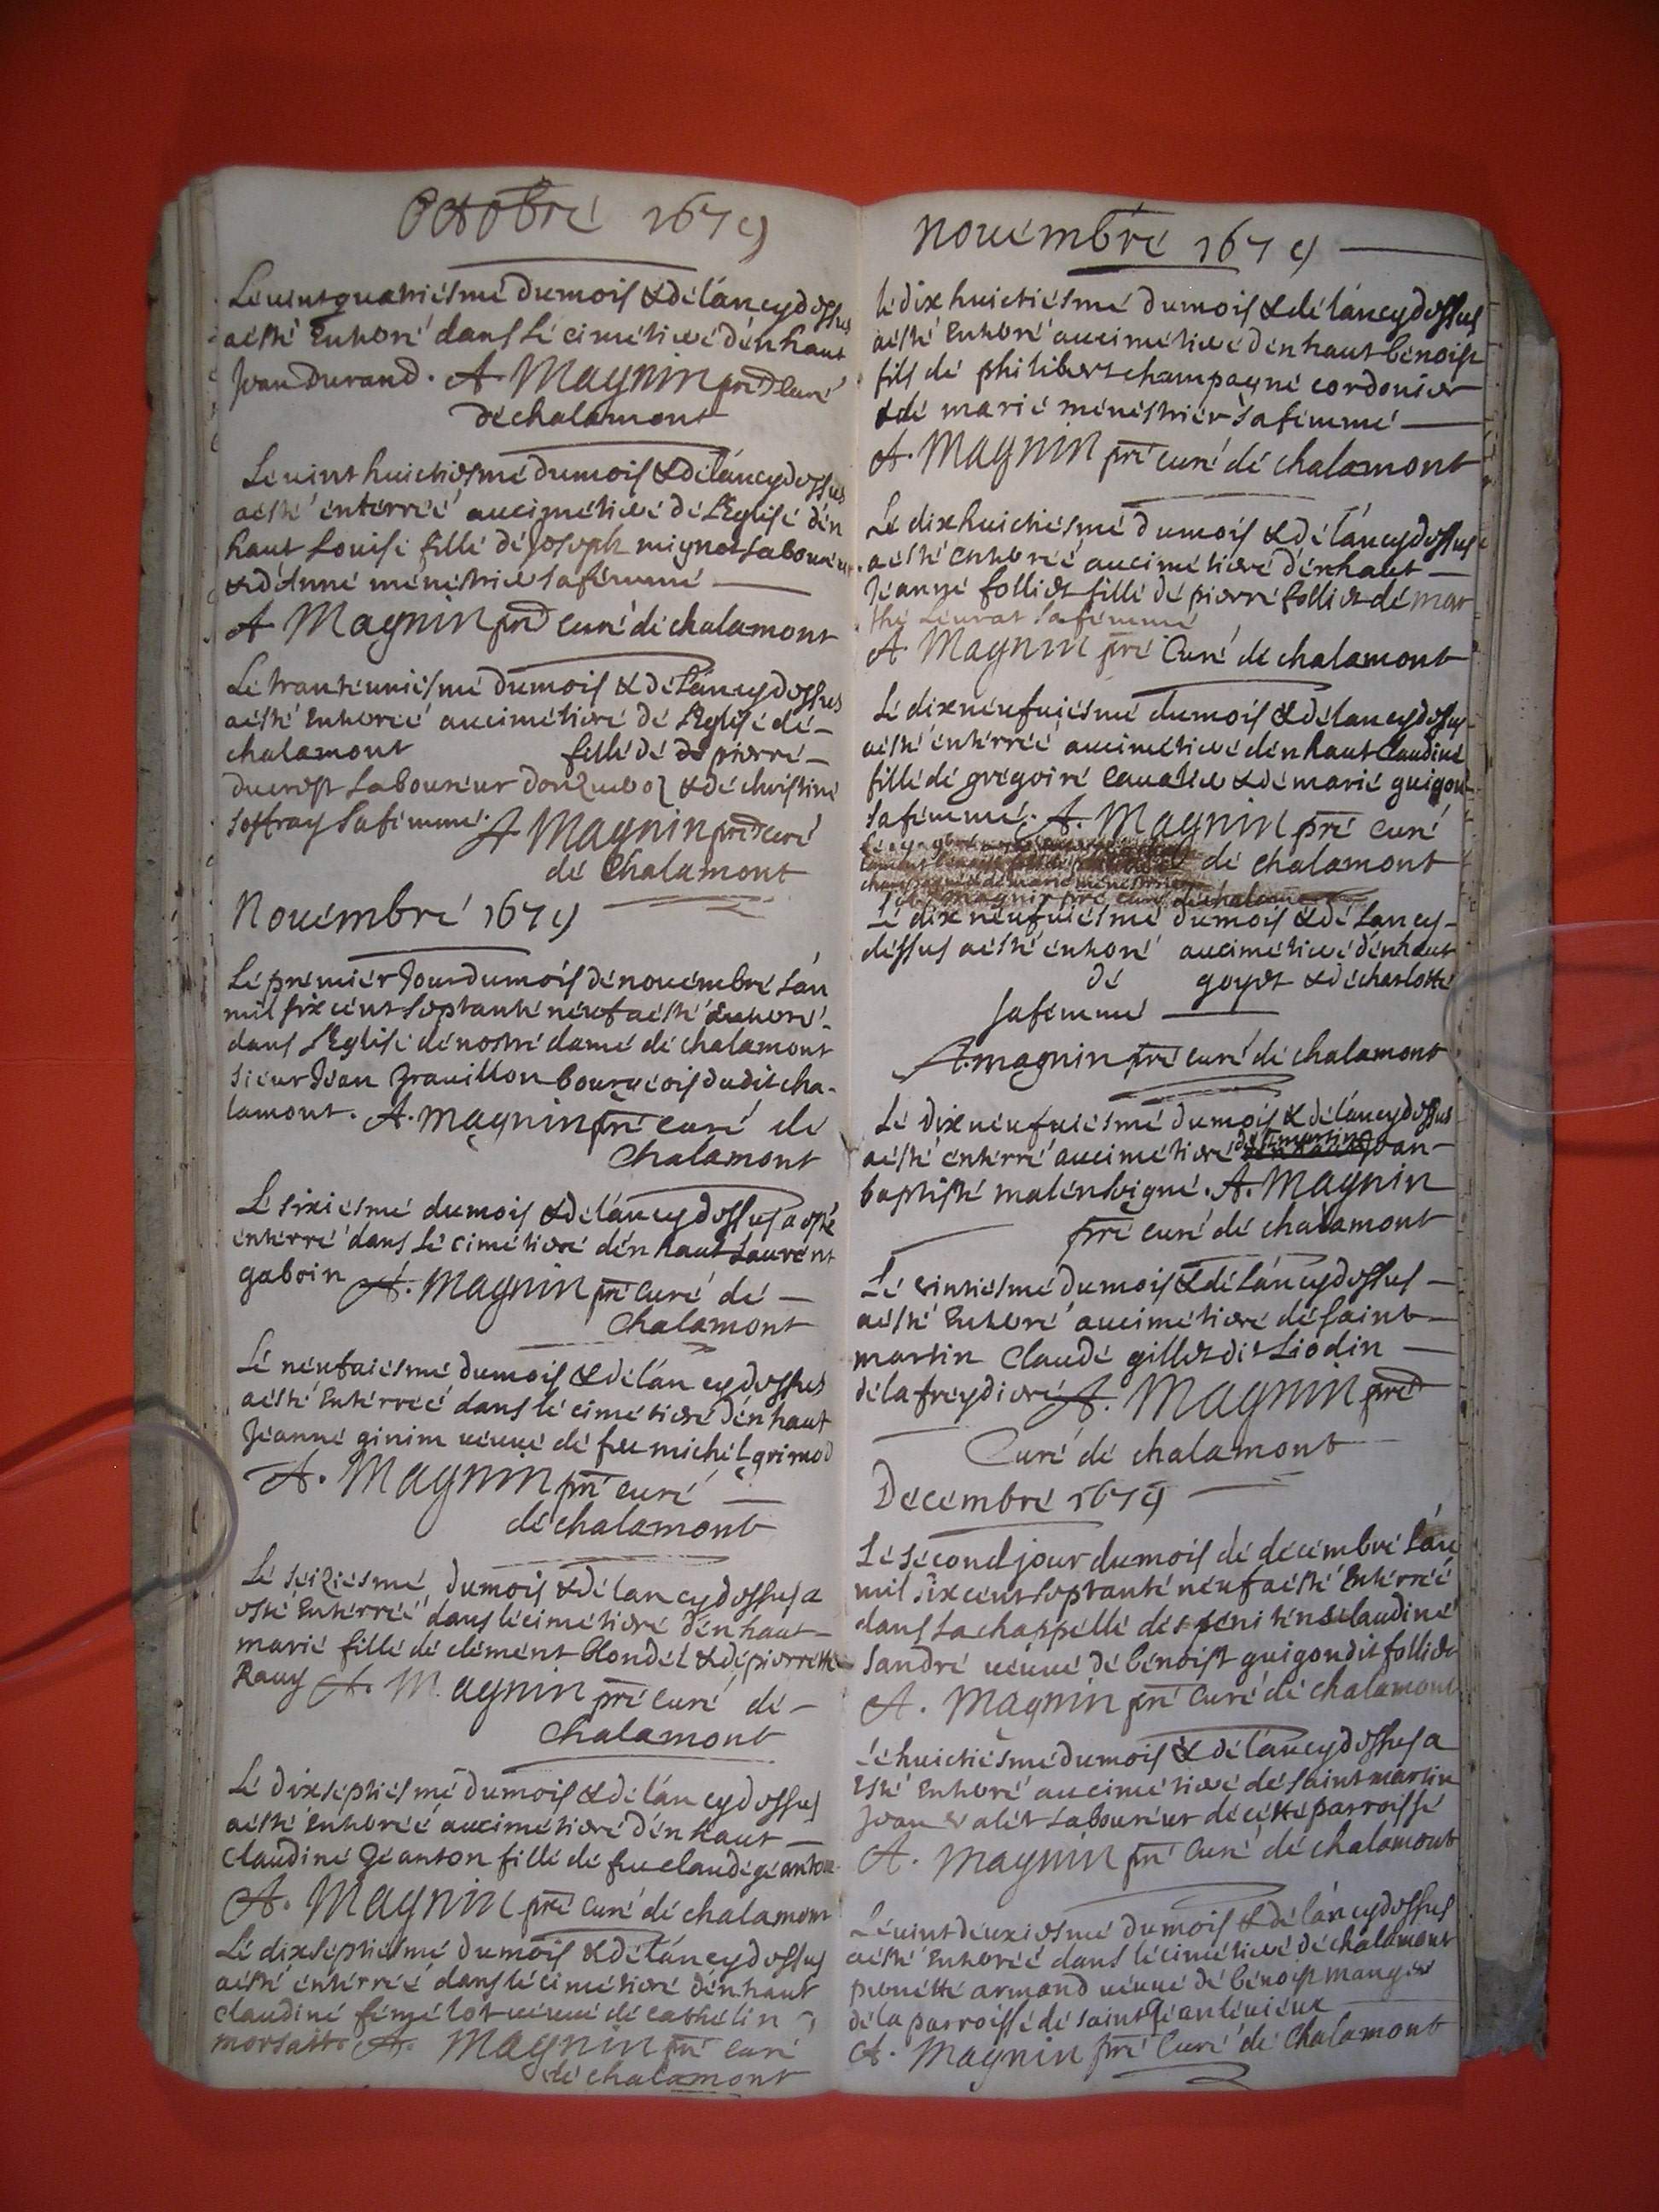 Octobre 1679
Le vint quatriesme du mois & de l'an cy dessus
a esté enterré dans le cimetiere d'en haut
Jean Durand. A. Magnin pre curé
de chalamont
Le vint huictiesme du mois & de l'an cy dessus
a esté enterrée au cimetiere de l'Eglise d'en
haut Louise fille de Joseph mignot laboureur
& d'Anne menestrier sa femme
A Magnin pre curé de chalamont
Le trante uniesme du mois & de l'an cy dessus
a esté enterrée au cimetiere de l'Eglise de
chalamont fille de de pierre
ducrest laboureur & de christine
soffray sa femme. A Magnin pre curé
de Chalamont
Nouembre 1679
Le premier Jour du mois de nouembre l'an
mil six cent septante neuf a esté enterré
dans l'Eglise de nostre dame de chalamont
sieur Jean grauillon bourgeois dudit cha-
lamont. A. magnin pre curé de
Chalamont
Le sixiesme du mois & de l'an cy dessus a esté
enterré dans le cimetiere d'en haut Laurent
gaboin A. Magnin pre Curé de
Chalamont
Le neufuiesme du mois & de l'an cy dessus
a esté enterrée dans le cimetiere d'en haut
Jeanne ginim ueuue de feu michel grimod
A. Magnin pre curé
de chalamont
Le seiziesme du mois & de l'an cy dessus a
esté enterrée dans le cimetiere d'en haut
marie fille de clément blondel & de pierrette
Rauy A. Magnin pre curé de
Chalamont
Le dixseptiesme du mois & de l'an cy dessus
a esté enterrée au cimetiere d'en haut
claudine Jeanton fille de feu claude jeanton
A. Magnin pre Curé de chalamont
Le dixseptiesme du mois & de l'an cy dessus
a esté enterrée dans le cimetiere d'en haut
claudine femelot ueuue de cathelin
A. Magnin pre Curé
de chalamont
nouembre 1679
le dix huictiesme du mois & de l'an cy dessus
a esté enterré au cimetiere d'en haut benoist
fils de philibert champagne cordonier
& de marie menestrier sa femme
A. Magnin pre curé de chalamont
Le dixhuictiesme du mois & de l'an cy dessus
a esté enterrée au cimetiere d'en haut
Jeanne folliet fille de pierre folliet & de mar
the Leurat sa femme
A. Magnin pre Curé de chalamont
Le dixneufuiesme du mois & de l'an cy dessus
a esté enterrée au cimetiere d'en haut Claudine
fille de gregoire Caualier & de marie guigou
sa femme. A. Magnin pre curé
de chalamont
Le dix neufuiesme du mois & de l'an cy
dessus a esté enterré au cimetiere d'en haut
de goyet & de charlotte
sa femme
A. magnin pre curé de chalamont
Le dixneufuiesme du mois & de l'an cy dessus
a esté enterré au cimetiere de st martin Jean
baptiste malensoigne. A. Magnin
pre curé de chalamont
Le vintiesme du mois & de l'an cy dessus
a esté enterré au cimetiere de saint
martin Claude gillet dit Liodin
de la freydiere A. Magnin pre
Curé de chalamont
Decembre 1679
Le second jour du mois de decembre l'an
mil six cent septante neuf a esté enterrée
dans la chappelle des penitens claudine
sandre ueuue de benoist guigou dit folliet
A. Magnin pre Curé de chalamont
Le huictiesme du mois & de l'an cy dessus a
esté enterré au cimetiere de saint martin
Jean valet laboureur de cette parroisse
A. Magnin pre Curé de chalamont
Le vint deuxiesme du mois & de l'an cy dessus
a esté enterrée dans le cimetiere de chalamont
pierrette armand ueuue de benoist
de la parroisse de saint Jean le uieux
A. Magnin pre Curé de Chalamont